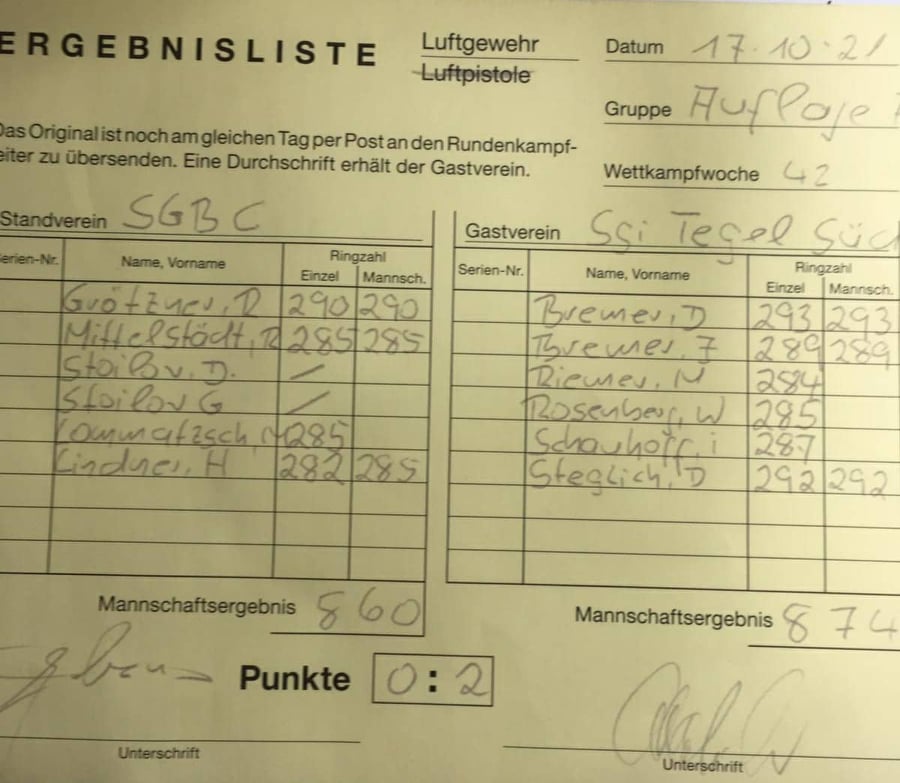 ERGEBNISLISTE
Luftgewehr
Luftpistole
Datum 17.10.21
Gruppe Auflage
Das Original ist noch am gleichen Tag per Post an den Rundenkampf-
leiter zu übersenden. Eine Durchschrift erhält der Gastverein.
Wettkampfwoche 42
Standverein SGBC
Gastverein Sgi Tegel Süd
Serien-Nr. Name, Vorname Ringzahl Einzel Mannsch.
Grötzner, D 290 290
Mittelstädt, R 285 285
Stoilov, D. /
Stoilov G /
Lommatzsch, 285
Lindner, H 282 285
Mannschaftsergebnis 860
Serien-Nr. Name, Vorname Ringzahl Einzel Mannsch.
Bremer, D 293 293
Bremer, J 289 289
Riemer, M 284
Rosenberg, W 285
Schauhoff, i 287
Steglich, D 292 292
Mannschaftsergebnis 874
Punkte 0:2
Unterschrift
Unterschrift